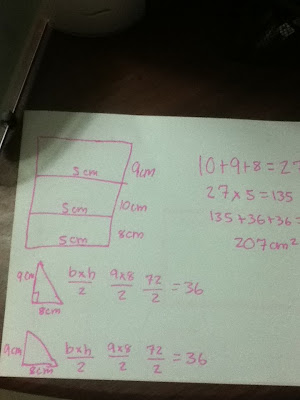 5cm 9cm
5cm 10cm
5cm 8cm
10+9+8=27
27×5=135
135+36+36=
207cm²
9cm 8cm b×h/2 9×8/2 72/2 =36
9cm 8cm b×h/2 9×8/2 72/2 =36